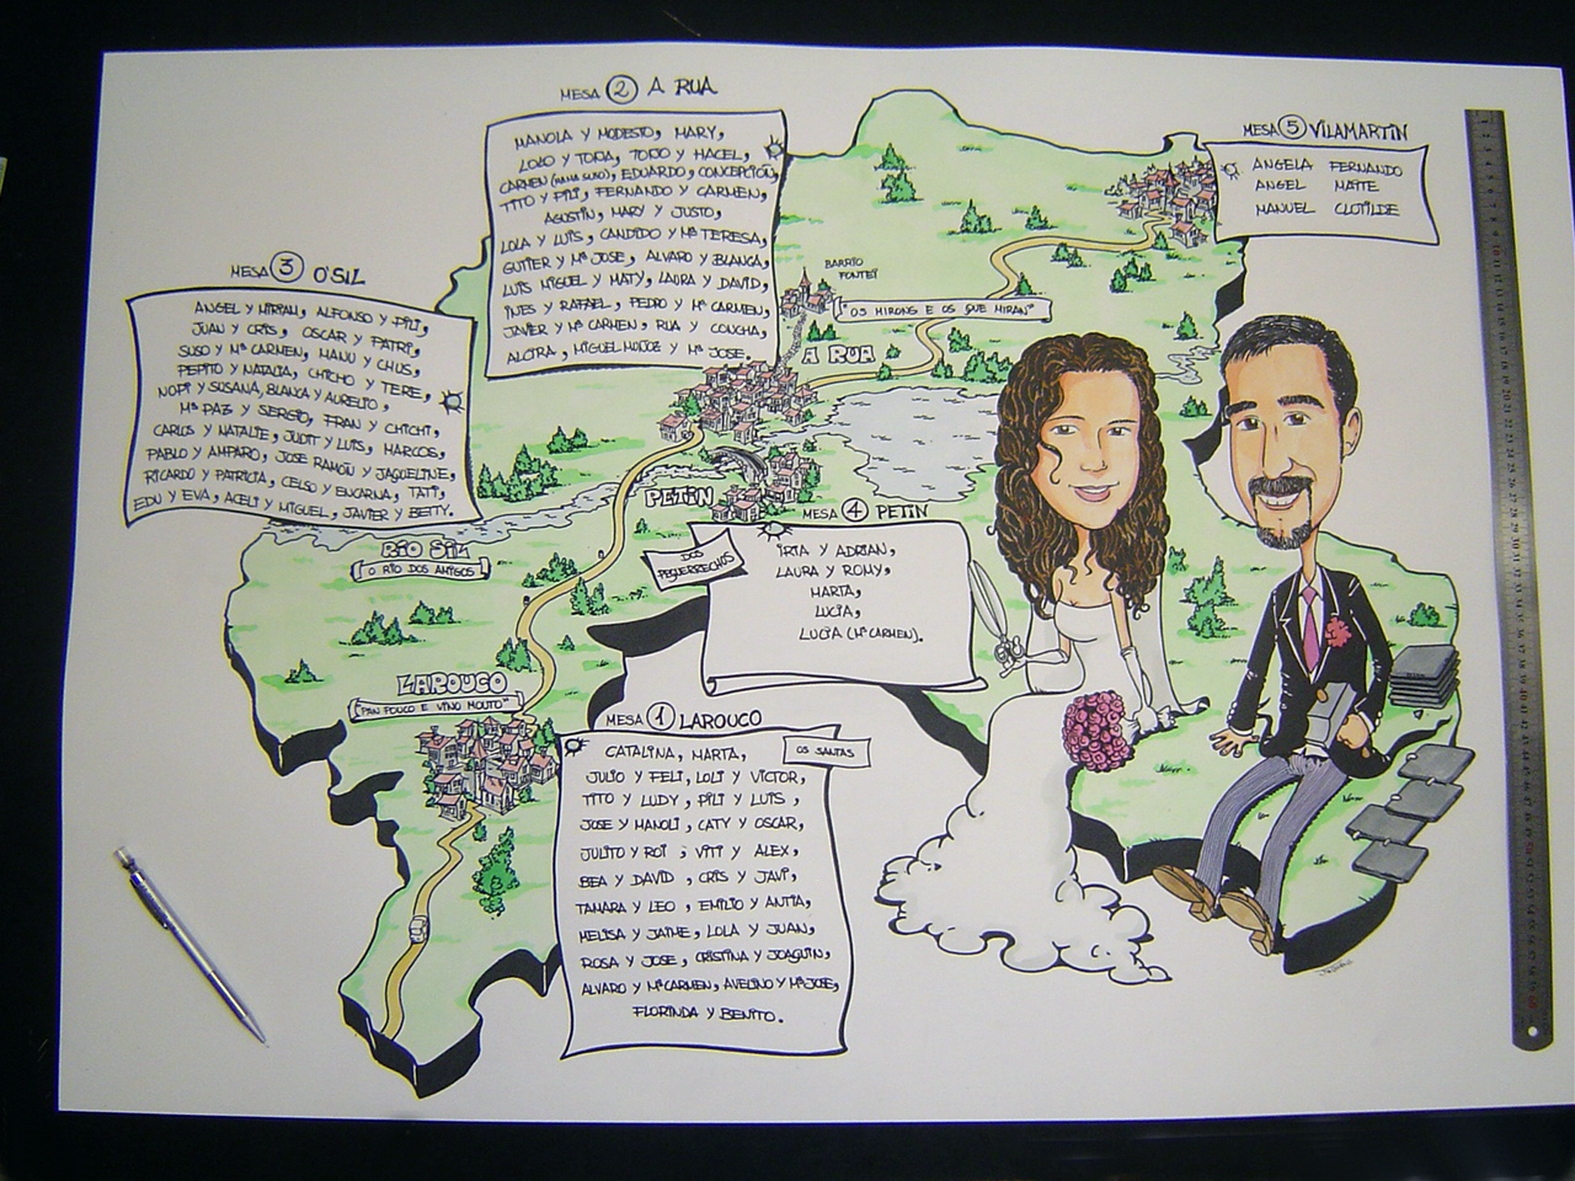 MESA 2 A RUA
MANOLA Y MODESTO, MARY,
LOLO Y TOÑA, TOÑO Y HACEL,
CARMEN (MAMA SUSO), EDUARDO, CONCEPCIÓN,
TITO Y PILI, FERNANDO Y CARMEN,
AGUSTIN, MARY Y JUSTO,
LOLA Y LUIS, CANDIDO Y Mª TERESA,
GUTIER Y Mª JOSE, ALVARO Y BLANCA,
LUIS MIGUEL Y MATY, LAURA Y DAVID,
INES Y RAFAEL, PEDRO Y Mª CARMEN,
JAVIER Y Mª CARMEN, RUA Y CONCHA,
ALCIRA, MIGUEL MUÑOZ Y Mª JOSE.
MESA 5 VILAMARTIN
ANGELA FERNANDO
ANGEL MAITE
MANUEL CLOTILDE
MESA 3 O'SIL
ANGEL Y MIRIAM, ALFONSO Y PILI,
JUAN Y CRIS, OSCAR Y PATRI,
SUSO Y Mª CARMEN, MANU Y CHUS,
PEPITO Y NATALIA, CHICHO Y TERE,
NOPI Y SUSANA, BLANCA Y AURELIO,
Mª PAZ Y SERGIO, FRAN Y CHICHI,
CARLOS Y NATALIE, JUDIT Y LUIS, MARCOS,
PABLO Y AMPARO, JOSE RAMÓN Y JAQUELINE,
RICARDO Y PATRICIA, CELSO Y ENCARNA, TATI,
EDU Y EVA, ACELI Y MIGUEL, JAVIER Y BETTY.
BARRIO
FONTEI
"OS MIRONS E OS QUE MIRAN"
A RUA
PETIN
RIO SIL
O RIO DOS AMIGOS
MESA 4 PETIN
DOS
PEQUERRECHOS
IRIA Y ADRIAN,
LAURA Y ROMY,
MARTA,
LUCIA,
LUCIA (Mª CARMEN).
LAROUCO
"PAN POUCO E VIÑO MOUTO"
MESA 1 LAROUCO
OS SANTAS
CATALINA, MARTA,
JULIO Y FELI, LOLI Y VICTOR,
TITO Y LUDY, PILI Y LUIS,
JOSE Y MANOLI, CATY Y OSCAR,
JULITO Y ROI, VITI Y ALEX,
BEA Y DAVID, CRIS Y JAVI,
TAMARA Y LEO, EMILIO Y ANTIA,
MELISA Y JAIME, LOLA Y JUAN,
ROSA Y JOSE, CRISTINA Y JOAQUIN,
ALVARO Y Mª CARMEN, AVELINO Y Mª JOSE,
FLORINDA Y BENITO.